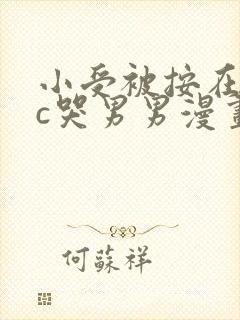 小受被按在
c哭男男漫畫
何蘇祥